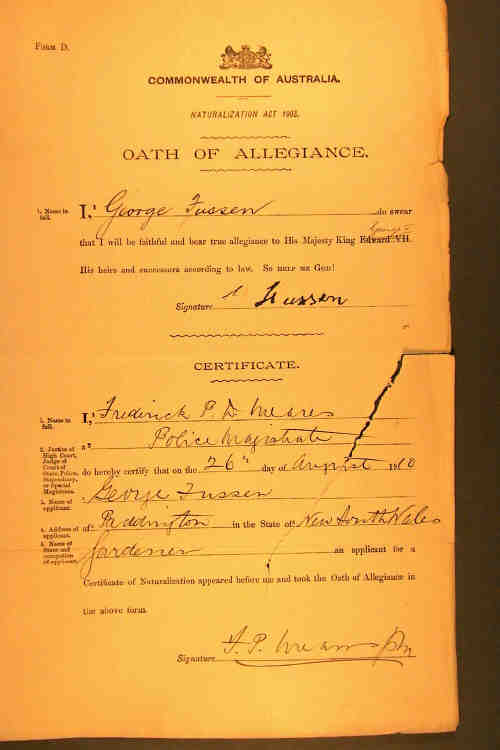 FORM D.
COMMONWEALTH OF AUSTRALIA.
NATURALIZATION ACT 1903.
OATH OF ALLEGIANCE.
1. Name in full. I,¹ George Fussen do swear
George V
that I will be faithful and bear true allegiance to His Majesty King Edward VII.
His heirs and successors according to law. SO HELP ME GOD!
Signature G Fussen
CERTIFICATE.
1. Name in full. I,¹ Frederick P. D. Meares
2. Justice of High Court, Judge of Court of State, Police, Stipendiary, or Special Magistrate. a² Police Magistrate
do hereby certify that on the 26th day of August 1910
3. Name of applicant. George Fussen
4. Address of applicant. of⁴ Paddington in the State of⁵ New South Wales
5. Name of State and occupation of applicant. Gardener an applicant for a
Certificate of Naturalization appeared before me and took the Oath of Allegiance in
the above form.
Signature F. P. Meares PM